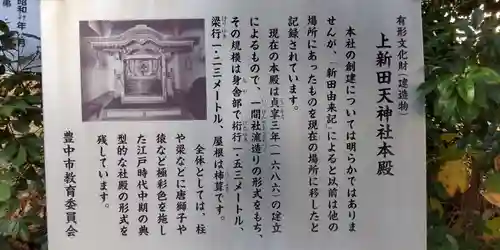 有形文化財(建造物)
上新田天神社本殿
本社の創建については明らかではありま
せんが、「新田由来記」によると以前は他の
場所にあったものを現在の場所に移したと
記録されています。
現在の本殿は貞享三年(一六八六)の建立
によるもので、一間社流造りの形式をもち、
その規模は身舎部で桁行一・五三メートル、
梁行一・二三メートル、屋根は杮葺です。
全体としては、柱
や梁などに唐獅子や
猿など極彩色を施し
た江戸時代中期の典
型的な社殿の形式を
残しています。
豊中市教育委員会
昭和